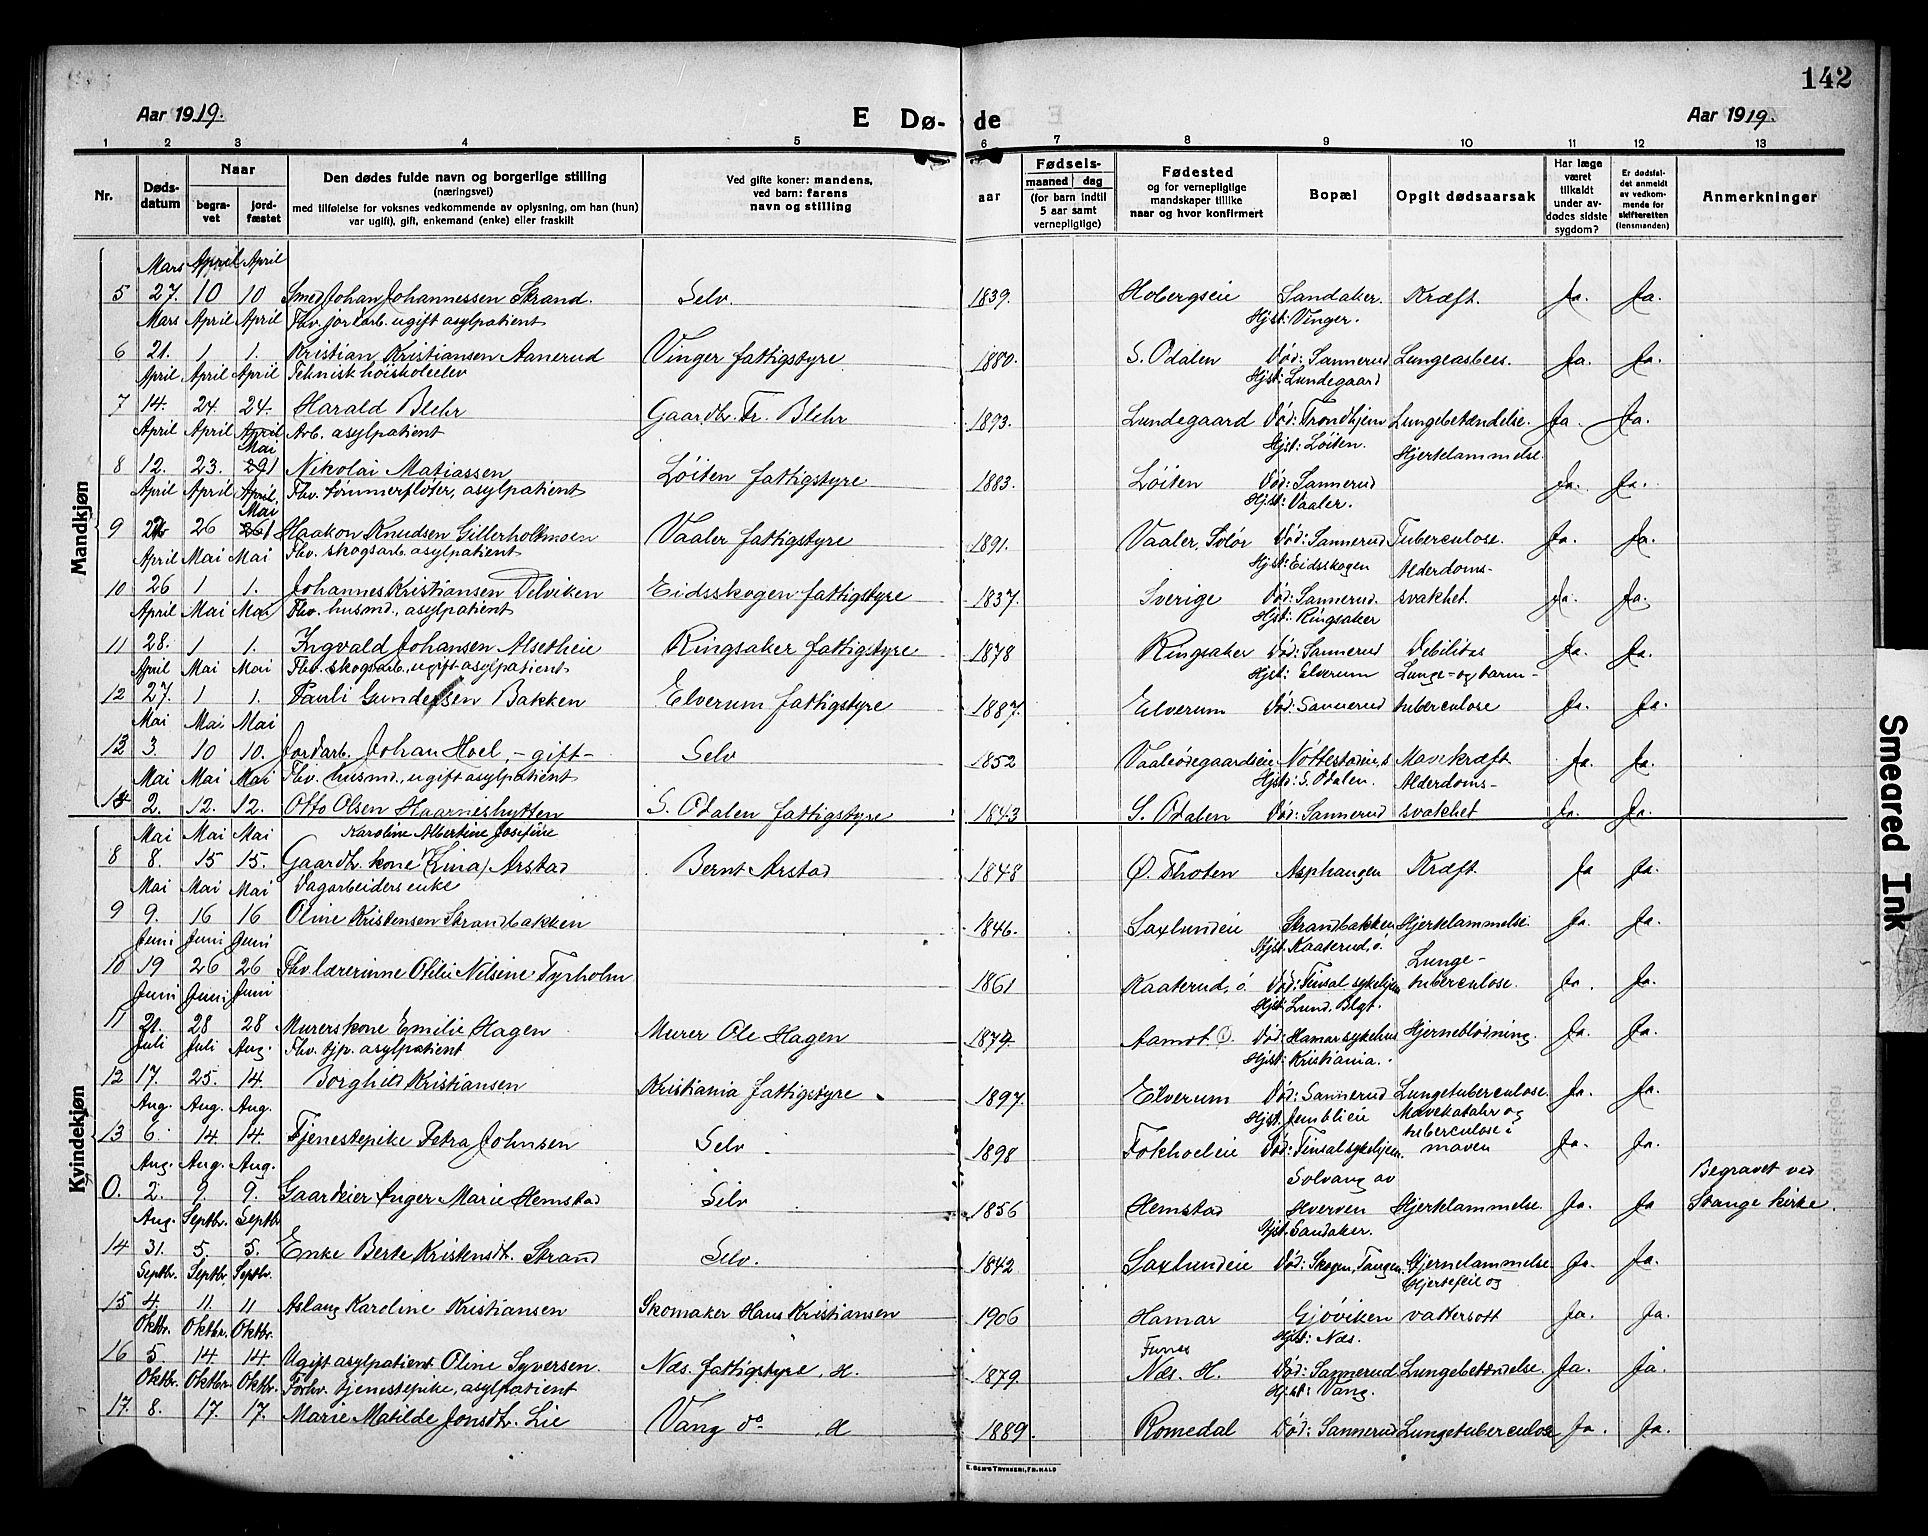 142
Aar 1919.
E Dø- de
Aar 1919.
1 2 3 4 5 6 7 8 9 10 11 12 13
Nr.
Døds-
datum
Naar
begra-
vet
jord-
fæstet
Den dødes fulde navn og borgerlige stilling
(næringsvei)
med tilføielse for voksnes vedkommende av oplysning, om han (hun)
var ugift, gift, enkemand (enke) eller fraskilt
Ved gifte koner: mandens,
ved barn: farens
navn og stilling
aar
Fødsels-
maaned dag
(for barn indtil
5 aar samt
vernepligtige)
Fødested
og for vernepligtige
mandskaper tillike
naar og hvor konfirmert
Bopæl
Opgit dødsaarsak
Har læge
været
tilkaldt
under av-
dødes sidste
sygdom?
Er dødsfal-
det anmeldt
av vedkom-
mende for
skifteretten
(lensmanden)
Anmerkninger
Mandkjøn
Mars April April
5 27. 10 10 Smed Johan Johannessen Strand. Selv. 1839. Hobergseie Sandaker. Kræft. Ja. Ja.
Mars April April Fhv. jordarb. ugift asylpatient Hjst: Vinger.
6 21. 1 1. Kristian Kristiansen Aanerud Vinger fattigstyre 1880. S. Odalen Død: Sannerud Lungeabces. Ja. Ja.
April April April Teknisk høiskoleelev Hjst: Lundegaard
7 14. 24. 24. Harald Blehr Gaardbr. Fr. Blehr 1893. Lundegaard Død: Trondhjem Lungebetændelse. Ja. Ja.
April April April Mai Arb. asylpatient Hjst: Løiten.
8 12. 23. 29 1 Nikolai Matiassen Løiten fattigstyre 1883. Løiten Død: Sannerud Hjertelammelse Ja. Ja.
April April April Mai Fhv. tømmerfløter, asylpatient Hjst: Vaaler.
9 26 26 1 Haakon Knudsen Gillerholtmoen Vaaler fattigstyre 1891. Vaaler, Solør Død: Sannerud Tuberculose. Ja. Ja.
April Mai Mai Fhv. skogsarb. asylpatient Hjst: Eidsskogen Alderdoms-
10 26 1 1. Johannes Kristiansen Delviken Eidsskogen fattigstyre 1837. Sverige Død: Sannerud. svakhet. Ja. Ja.
April Mai Mai Fhv. husmd., asylpatient Hjst: Ringsaker
11 28. 1 1. Ingvald Johansen Alsetheie Ringsaker fattigstyre 1878 Ringsaker Død: Sannerud Debilitas Ja. Ja.
April Mai Mai Fhv. skogsarb., ugift asylpatient Hjst: Elverum Lunge- og tarm-
12 27. 1 1. Pauli Gundersen Bakken Elverum fattigstyre 1887. Elverum Død: Sannerud tuberculose Ja. Ja.
Mai Mai Mai
13 3. 10 10. Jordarb. Johan Hoel, - gift - Selv 1852 Nøttestadeie, s Mavekræft Ja. Ja.
Mai Mai Mai Fhv. husmd., ugift asylpatient Hjst: S. Odalen. Alderdoms-
14 2. 12. 12. Otto Olsen Haarneshytten S. Odalen fattigstyre 1843 S. Odalen Død: Sannerud svakhet Ja. Ja.
Kvindekjøn
Mai Mai Mai Karoline Albertine Josefine
8 8. 15 15. Gaardbr. kone (Lina) Arstad Bernt Arstad 1848 Ø. Thoten Asphaugen Kræft. Ja Ja.
Mai Mai Mai Dagarbeiders enke
9 9. 16 16 Oline Kristensen Strandbakken 1846. Saxlundeie Strandbakken Hjertelammelse. Ja. Ja.
Juni Juni Juni Hjst. Kaaterud, ø Lunge-
10 19 26 26 Fhv. lærerinne Otilie Nilsine Tyrholm 1861 Kaaterud, ø Død: Finsal sykehjem tuberculose. Ja. Ja.
Juni Juni Juni Hjst: Lund, Blgt.
11 21. 28 28 Murerskone Emilie Hagen Murer Ole Hagen 1874 Aamot. Ø. Død: Hamar sykehus Hjerneblødning. Ja. Ja.
Juli Juli Aug. Fhv. tjp. asylpatient Hjst: Kristiania.
12 17. 25. 14. Borghild Kristiansen Kristiania fattigstyre 1897. Elverum Død: Sannerud Lungetuberculose. Ja. Ja.
Aug. Aug. Aug. Hjst. Jemblieie Mavekatahr og tuberculose i
13 6. 14. 14. Tjenestepike Petra Johnsen Selv 1898 Fokholeie Død: Finsal sykehjem. maven Ja. Ja.
Aug. Aug. Aug. Solvang av Begravet ved
0. 2. 9. 9. Gaardeier Inger Marie Hemstad Selv 1856 Hemstad Hverven Hjertelammelse. Ja. Ja Stange kirke.
Aug. Septbr. Septbr Hjst. Sandaker.
14 31. 5. 5. Enke Berte Kristensdt. Strand Selv. 1842 Saxlundeie Død: Skogen, Tangen. Hjernelammelse Ja. Ja.
Septbr. Septbr Septbr. Hjertefeil og
15 4. 11. 11 Aslaug Karoline Kristiansen Skomaker Hans Kristiansen 1906 Hamar Gjøviken vattersott Ja. Ja.
Oktbr. Oktbr. Oktbr. Furnes Hjst: Næs.
16 5 14. 14. Ugift asylpatient Oline Syversen. Næs. fattigstyre, H. 1879. Næs. H. Død: Sannerud Lungebetændelse. Ja. Ja.
Oktbr. Oktbr. Oktbr. Forhv. tjenestepike, asylpatient Hjst: Vang.
17. 8. 17. 17. Marie Matilde Jonsdt. Lie Vang do H 1889. Romedal Død: Sannerud Lungetuberculose Ja. Ja.
E. SEM'S TRYKKERI, FR.HALD
Smeared Ink